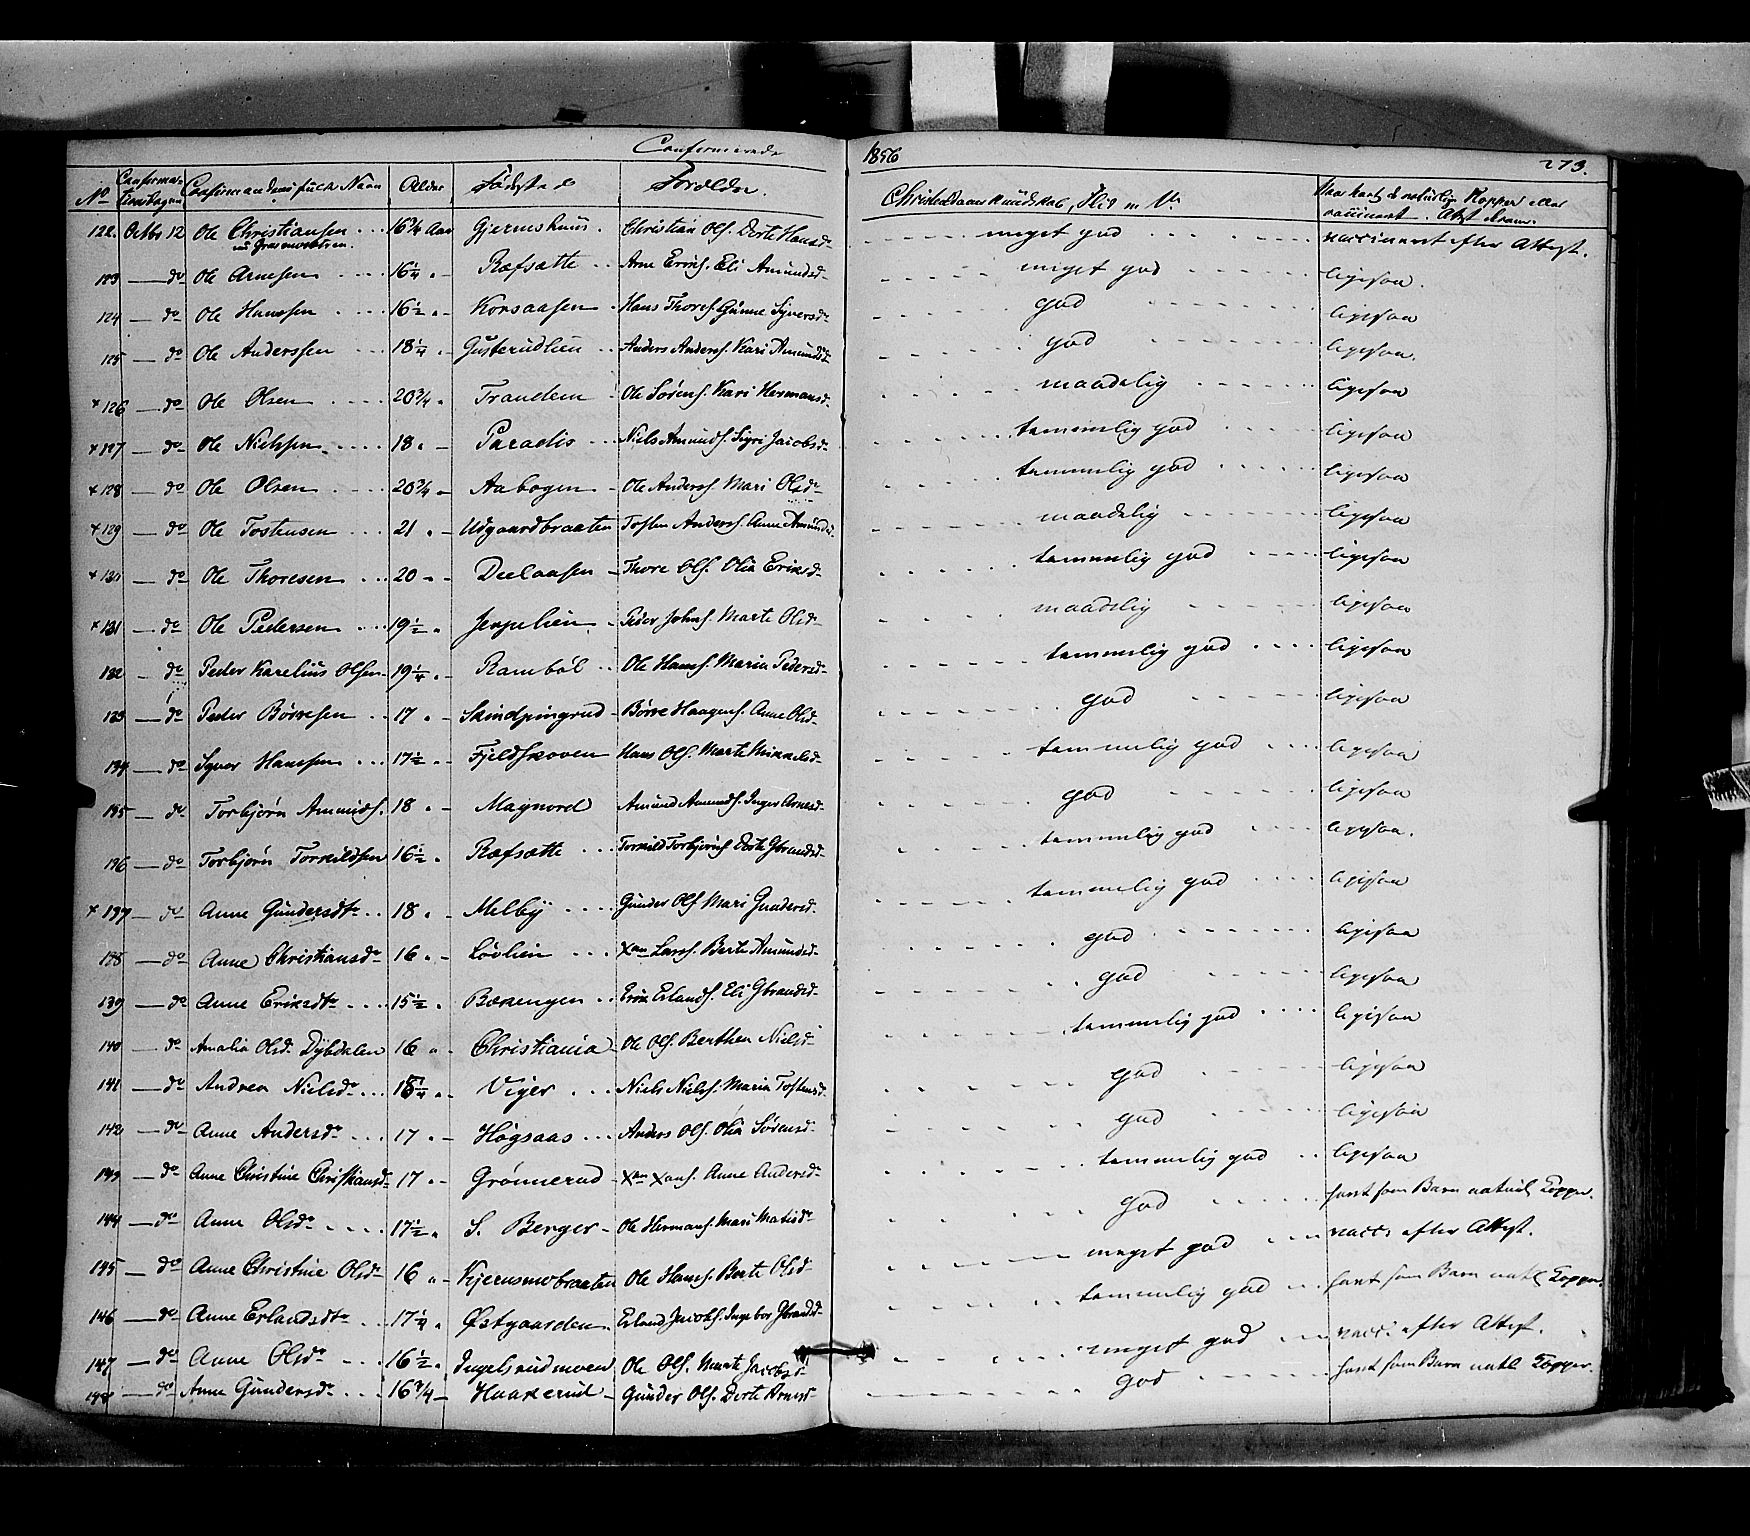 Confirmerede 1856 273.
No Confirmationsdagen Confirmandens fulde Navn Alder Fødested Forældre. Christendomskundskab, Flid m. V. Naar havt de naturlige Kopper eller vaccineret
122. Octbr 12 Ole Christiansen 16 3/4 Aar Gjermshuus. Christian Ols. Dorte Hansd. meget god vaccineret efter Attest.
123 — do Ole Arnesen 16 1/4 Ræfsætte Arne Eriks. Eli Amundsd. meget god ligesaa.
124 — do Ole Hanssen 16 1/2 Korsaasen Hans Thores. Gunne Syversd. god ligesaa
125 — do Ole Anderssen 18 1/4 Gusterudlien Anders Anders. Kari Amundsd. god ligesaa.
× 126 — do Ole Olsen 20 3/4 Trandem Ole Sørens. Kari Hermansd. maadelig ligesaa
× 127 — do Ole Nielssen 18 Paradis Niels Amunds. Sigri Jacobsd. temmelig god ligesaa
× 128 — do Ole Olsen 20 3/4 Aabogen Ole Anders. Mari Olsd. temmelig god ligesaa
× 129 — do Ole Tostensen 21 Udgaardbraaten Tosten Anders. Anne Amundsd. maadelig ligesaa
× 130 — do Ole Thoresen 20 Deelaasen Thore Ols. Olia Eriksd. temmelig god ligesaa
× 131 — do Ole Pedersen 19 1/2 Jerpelien Peder Johns. Marte Olsd. maadelig ligesaa
132 — do Peder Karelius Olsen 19 1/4 Rambøl Ole Hans. Maria Pedersd. temmelig god ligesaa
133 — do Peder Børresen 17 Skindpingrud Børre Haagens. Anne Olsd. god ligesaa
134 — do Syver Hanssen 17 1/2 Fjeldskoven Hans Ols. Marte Mikkelsd. temmelig god ligesaa
135 — do Torbjørn Amunds. 18 Magnord Amund Amunds. Inger Arnesd. god ligesaa
136 — do Torbjørn Torkildsen 16 1/2 Ræfsætte Torkild Torbjørns. Dorte Gbrandsd. temmelig god ligesaa.
× 137 — do Anne Gundersdtr 18 Melby Gunder Ols. Mari Gundersd. temmelig god ligesaa
138 — do Anne Christiansdr 16 Løvlien Xan Lars. Berte Amundsd. god ligesaa
139 — do Anne Eriksdtr 15 1/2 Bækengen Erik Erlands. Eli Gbrandsd. god ligesaa
140 — do Amalia Olsd. Dybdalen 16 Christiania Ole Ols. Berthea Nielsd. temmelig god ligesaa
141 — do Andrea Nielsdr 18 1/4 Viger Niels Niels. Maria Tostensd. god ligesaa
142 — do Anne Andersdr 17 Høgsaas Anders Ols. Olia Sørensd. god ligesaa
143 — do Anne Christine Christiansd. 17 Grønnerud Xan Xans. Anne Andersd. temmelig god ligesaa
144 — do Anne Olsdr 17 1/2 S. Berger Ole Hermans. Mari Matisdr god havt som Barn naturl. Kopper.
145 — do Anne Christine Olsdr 16 Kjernsmobraaten Ole Hans. Berte Olsd. meget god vacc. efter Attest.
146 — do Anne Erlandsdtr 17 1/4 Østgaarden Erland Jacobs. Ingebor Gbrandsd. temmelig god havt som Barn natl. Kopper.
147 — do Anne Olsdr 16 1/2 Ingelsrudmoen Ole Ols. Marte Jacobsd. meget god vacc. efter Attest.
148 — do Anne Gundersdr 16 3/4 Haakerud Gunder Ols. Dorte Arnesd. god havt som Barn natl. Kopper.